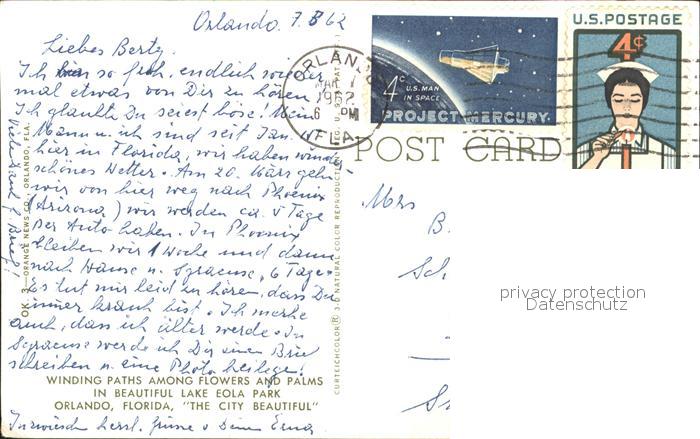 Orlando 7.3.62
Liebes Berty.
Ich bin so froh, endlich wieder
mal etwas von Dir zu hören
Ich glaubte Du seiest böse! Mein
Mann u. ich sind seit Jan.
hier in Florida, wir haben wunder-
schönes Wetter. Am 20. März gehn
wir von hier weg nach Phoenix
(Arizona) wir werden ca. 5 Tage
per Auto haben. In Phoenix
bleiben wir 1 Woche und dann
nach Hause n. Syracuse, 6 Tage.
Es tut mir leid zu hören, dass Du
immer krank bist. Ich merke
auch, dass ich älter werde. In
Syracuse werde ich Dir einen Brief
schreiben u. eine Photo beilegen!
WINDING PATHS AMONG FLOWERS AND PALMS
IN BEAUTIFUL LAKE EOLA PARK
ORLANDO, FLORIDA, "THE CITY BEAUTIFUL"
Inzwischen herzl. Grüsse v. Deiner Erna
Vielen Dank f. Brief!
OK 3—ORANGE NEWS CO., ORLANDO, FLA.
CURTEICHCOLOR® 3-D NATURAL COLOR REPRODUCTION
ORLANDO
MAR 7
6 PM
1962
FLA.
4c U.S. MAN
IN SPACE
PROJECT MERCURY
U.S. POSTAGE
4¢
POST CARD
Mrs
B.
Sch
privacy protection
Datenschutz